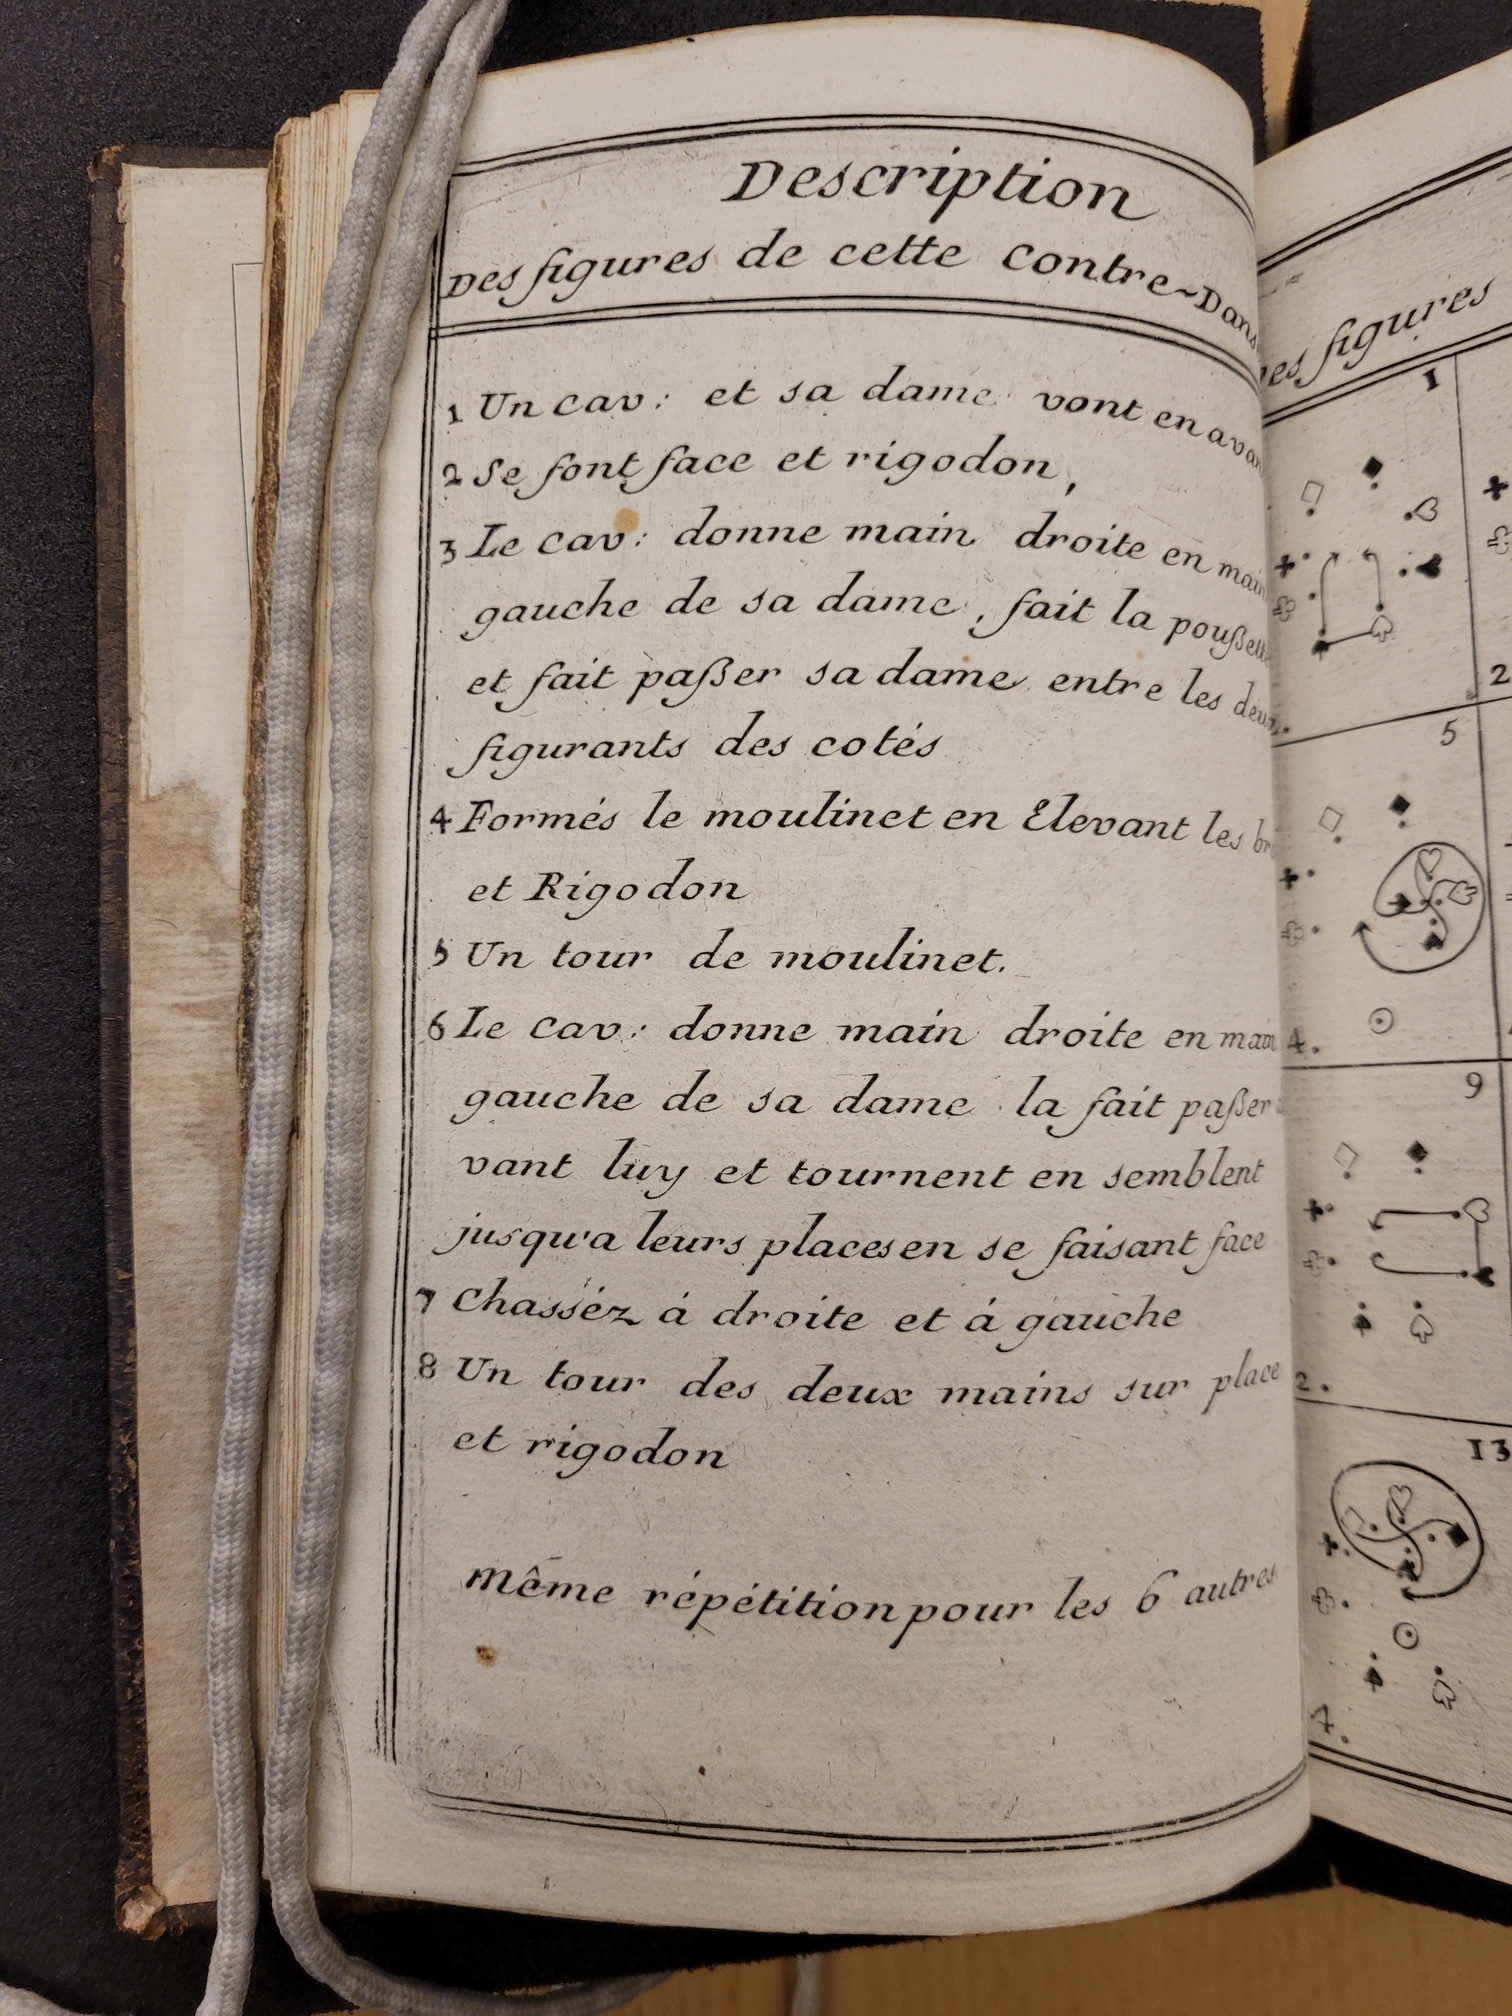 Description
Des figures de cette Contre~Dans
1 Un cav: et sa dame vont en avan
2 Se font face et rigodon,
3 Le cav: donne main droite en main
gauche de sa dame, fait la poußette
et fait paßer sa dame entre les deux
figurants des cotés
4 Formés le moulinet en Elevant les br
et Rigodon
5 Un tour de moulinet.
6 Le cav: donne main droite en main
gauche de sa dame la fait paßer
vant luy et tournent en semblent
jusqu'a leurs places en se faisant face
7 Chasséz á droite et á gauche
8 Un tour des deux mains sur place
et rigodon
même répétition pour les 6 autres
es figures
1
2
5
4.
9
2.
13
4.